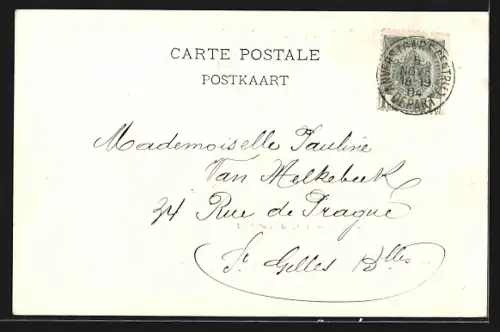 CARTE POSTALE
POSTKAART
ANVERS (GARE CENTRALE)
NOV
18-19
04
DEPART
Mademoiselle Pauline
Van Melkebeek
34 Rue de Prague
St Gilles Blles